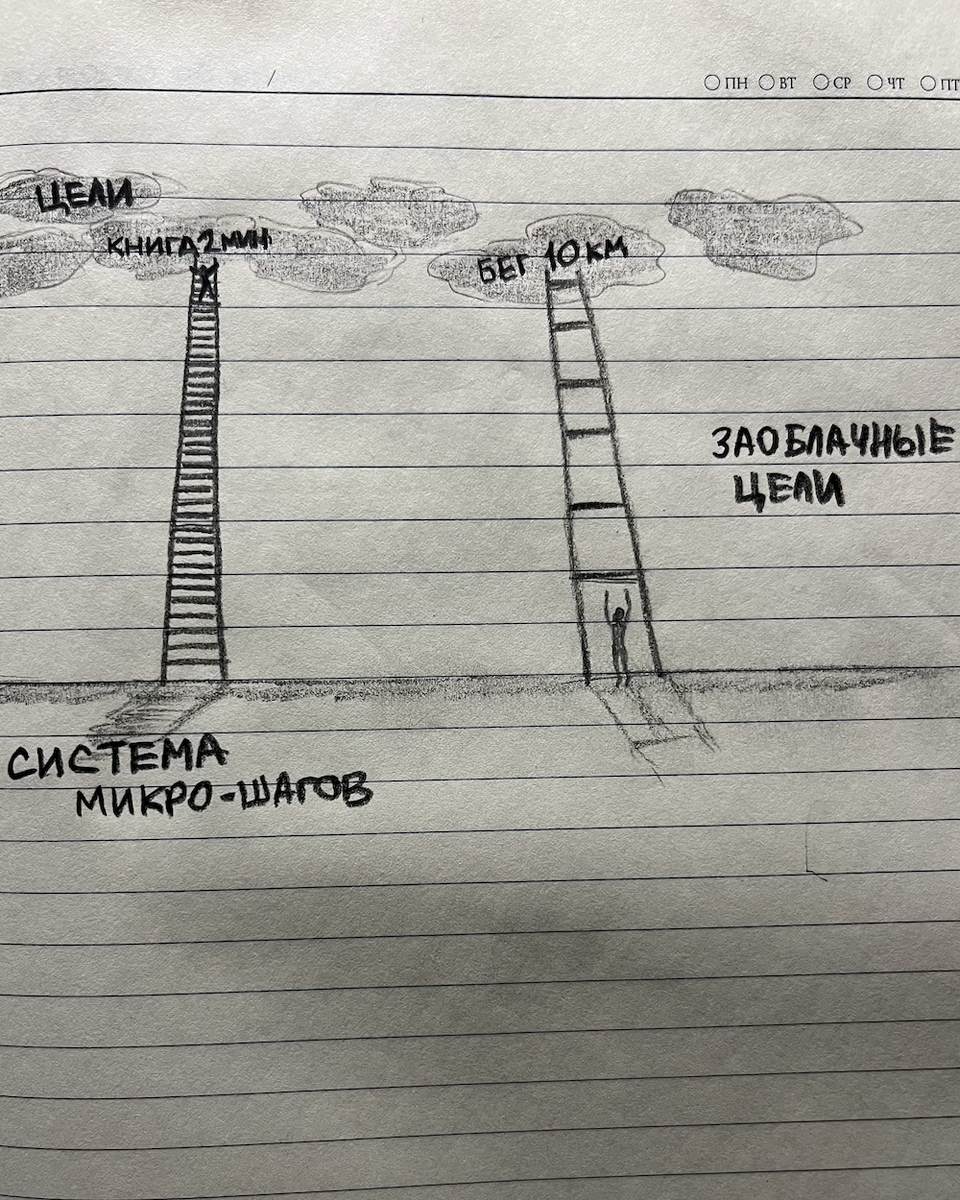 ПН ВТ СР ЧТ ПТ
ЦЕЛИ
КНИГА 2 МИН
БЕГ 10 КМ
ЗАОБЛАЧНЫЕ
ЦЕЛИ
СИСТЕМА
МИКРО-ШАГОВ